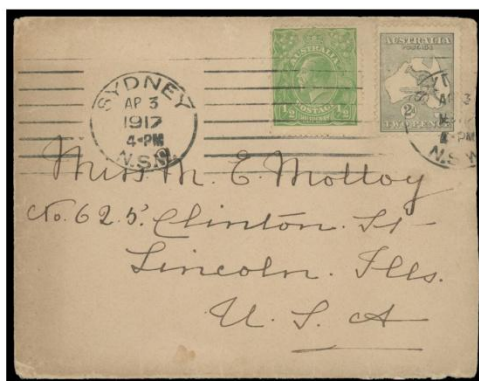 SYDNEY
AP 3
1917
4-PM
N.S.W.
AUSTRALIA
½ POSTAGE ½
AUSTRALIA
POSTAGE
2D
TWO PENCE
AP 3
4-PM
N.S.W.
Miss M. E. Mottoy
No. 625 Clinton St
Lincoln. Ills.
U. S. A